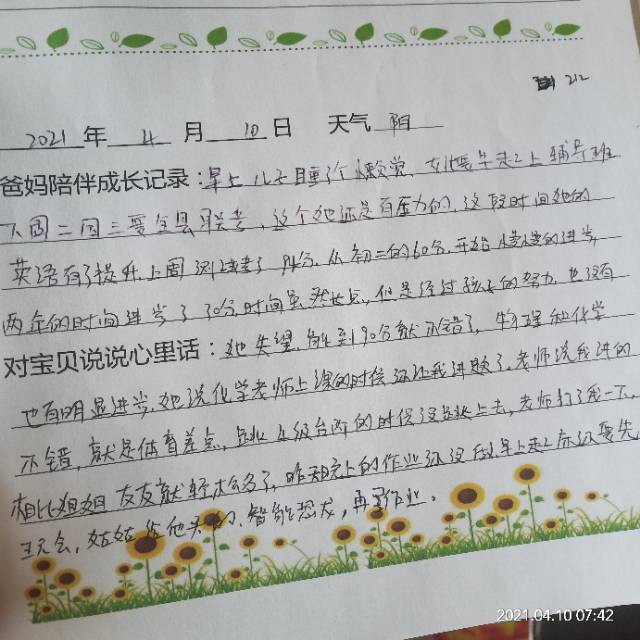 212
2021 年 4 月 10 日 天气 阴
爸妈陪伴成长记录：早上儿子睡个懒觉，女儿要早走去上辅导班
下周二周三要全县联考，这个她还是有压力的，这段时间她的
英语有了提升上周测试考了94分，从初一的60分，开始慢慢的进步
两年的时间进步了30分时间虽然长点，但是经过孩子的努力，也没有
对宝贝说说心里话：她失望，能到90分就不错了，物理和化学
也有明显进步，她说化学老师上课的时候还说我进步了，老师说我进的
不错，就是体育差点，跳台阶的时候没跳上去，老师打了我一下，
相比姐姐 友友就轻松多了，昨天晚上的作业还没做早上起来还要先
玩会，姑姑给他买的 智能恐龙，再写作业。
2021.04.10 07:42